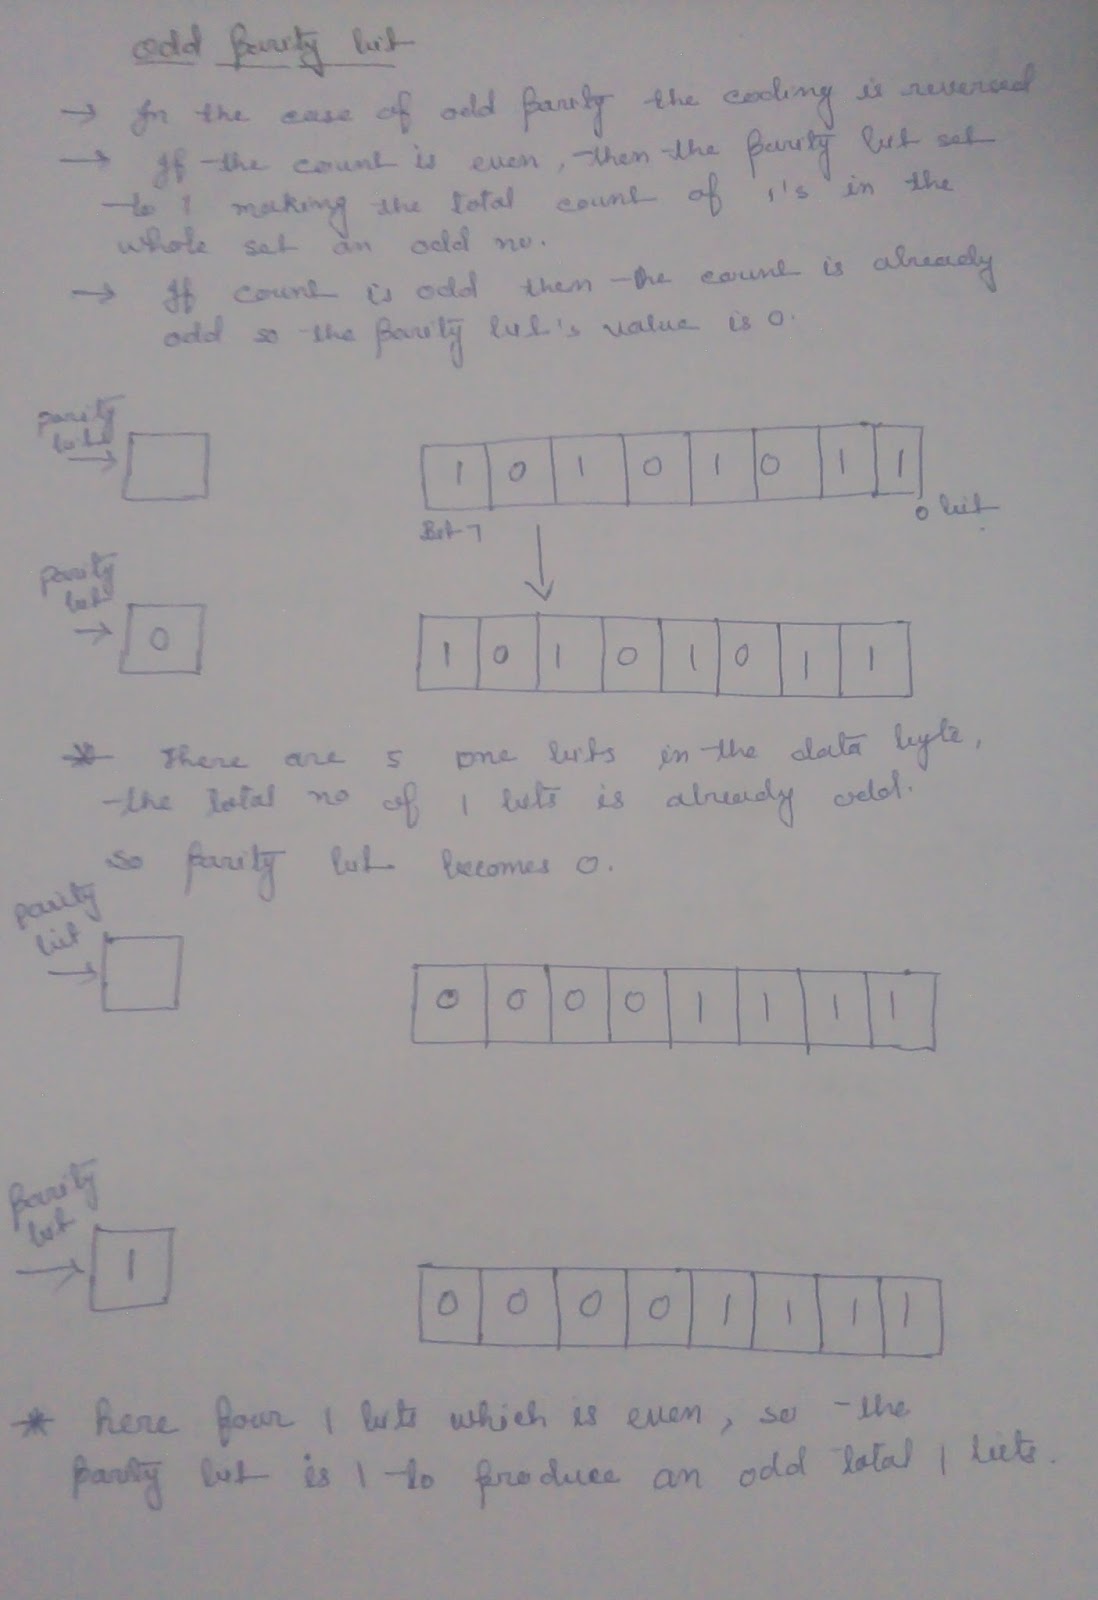 odd parity bit
→ In the case of odd parity the coding is reversed
→ If the count is even, then the parity bit set
to 1 making the total count of 1's in the
whole set an odd no.
→ If count is odd then the count is already
odd so the parity bit's value is 0.
parity
bit
→
1 0 1 0 1 0 1 1
Bit 7
0 bit
parity
bit
→ 0
1 0 1 0 1 0 1 1
* There are 5 one bits in the data byte,
the total no of 1 bits is already odd.
so parity bit becomes 0.
parity
bit
→
0 0 0 0 1 1 1 1
parity
bit
→ 1
0 0 0 0 1 1 1 1
* here four 1 bits which is even, so the
parity bit is 1 to produce an odd total 1 bits.